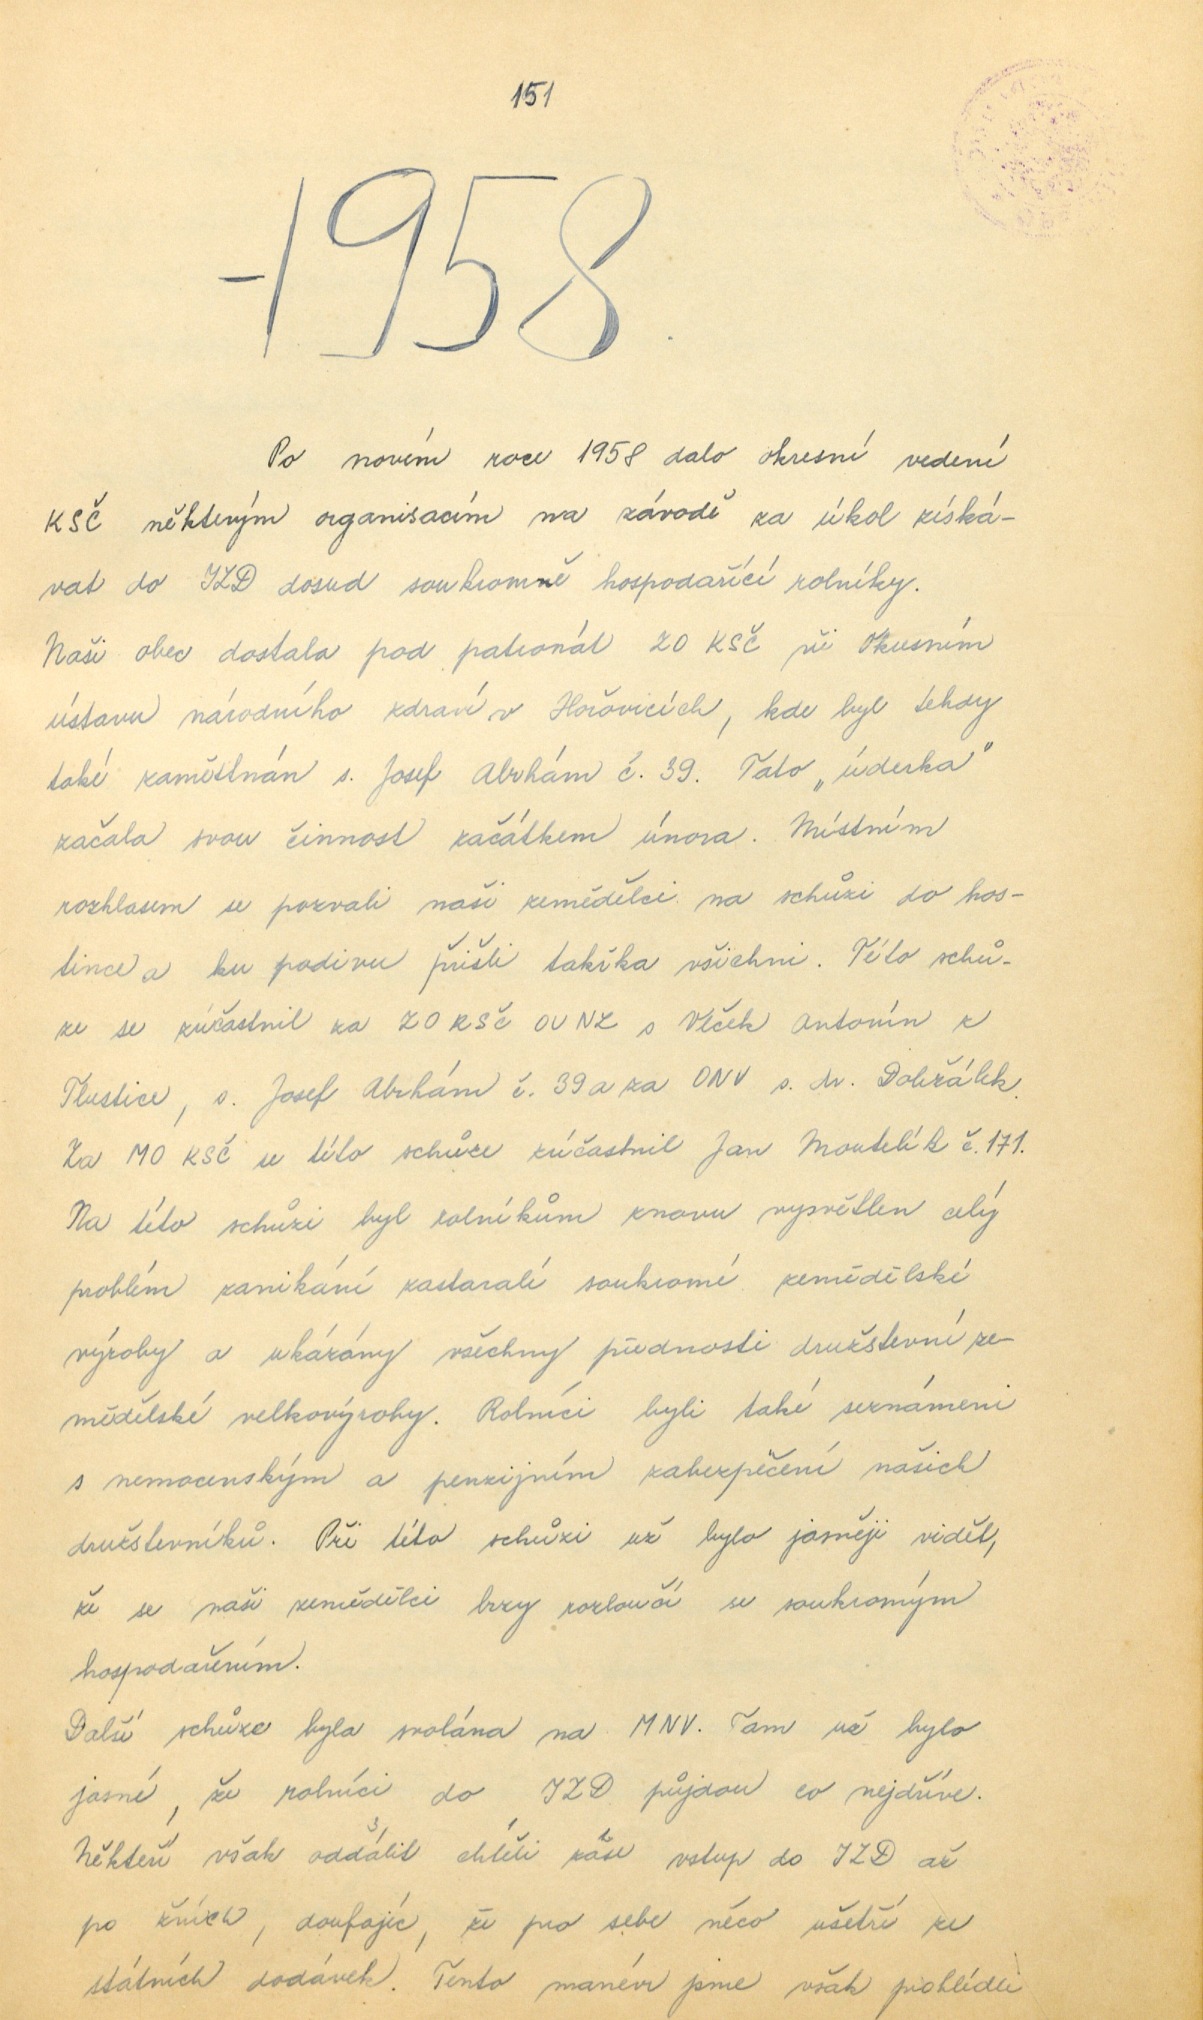 151
-1958.
Po novém roce 1958 dalo okresní vedení
KSČ některým organisacím na závodě za úkol získá-
vat do JZD dosud soukromně hospodařící rolníky.
Naši obec dostala pod patronát ZO KSČ při Okresním
ústavu národního zdraví v Hořovicích, kde byl tehdy
také zaměstnán s. Josef Abrhám č. 39. Tato „úderka"
začala svou činnost začátkem února. Místním
rozhlasem se pozvali naši zemědělci na schůzi do hos-
tince a ku podivu přišli takřka všichni. Této schů-
ze se zúčastnil za ZO KSČ OÚNZ s Vlček Antonín z
Tlustice, s. Josef Abrhám č. 39 a za ONV s. dr. Dobžálek.
Za MO KSČ se této schůze zúčastnil Jan Moutelík č. 171.
Na této schůzi byl rolníkům znovu vysvětlen celý
problém zanikání zastaralé soukromé zemědělské
výroby a ukázány všechny přednosti družstevní ze-
mědělské velkovýroby. Rolníci byli také seznámeni
s nemocenským a penzijním zabezpečení našich
družstevníků. Při této schůzi už bylo jasněji vidět,
že se naši zemědělci brzy rozloučí se soukromým
hospodařením.
Další schůze byla svolána na MNV. Tam už bylo
jasné, že rolníci do JZD půjdou co nejdříve.
Někteří však oddálit chtěli vstup do JZD až
po žních, doufajíc, že pro sebe něco ušetří ze
státních dodávek. Tento manévr jsme však prohlédli